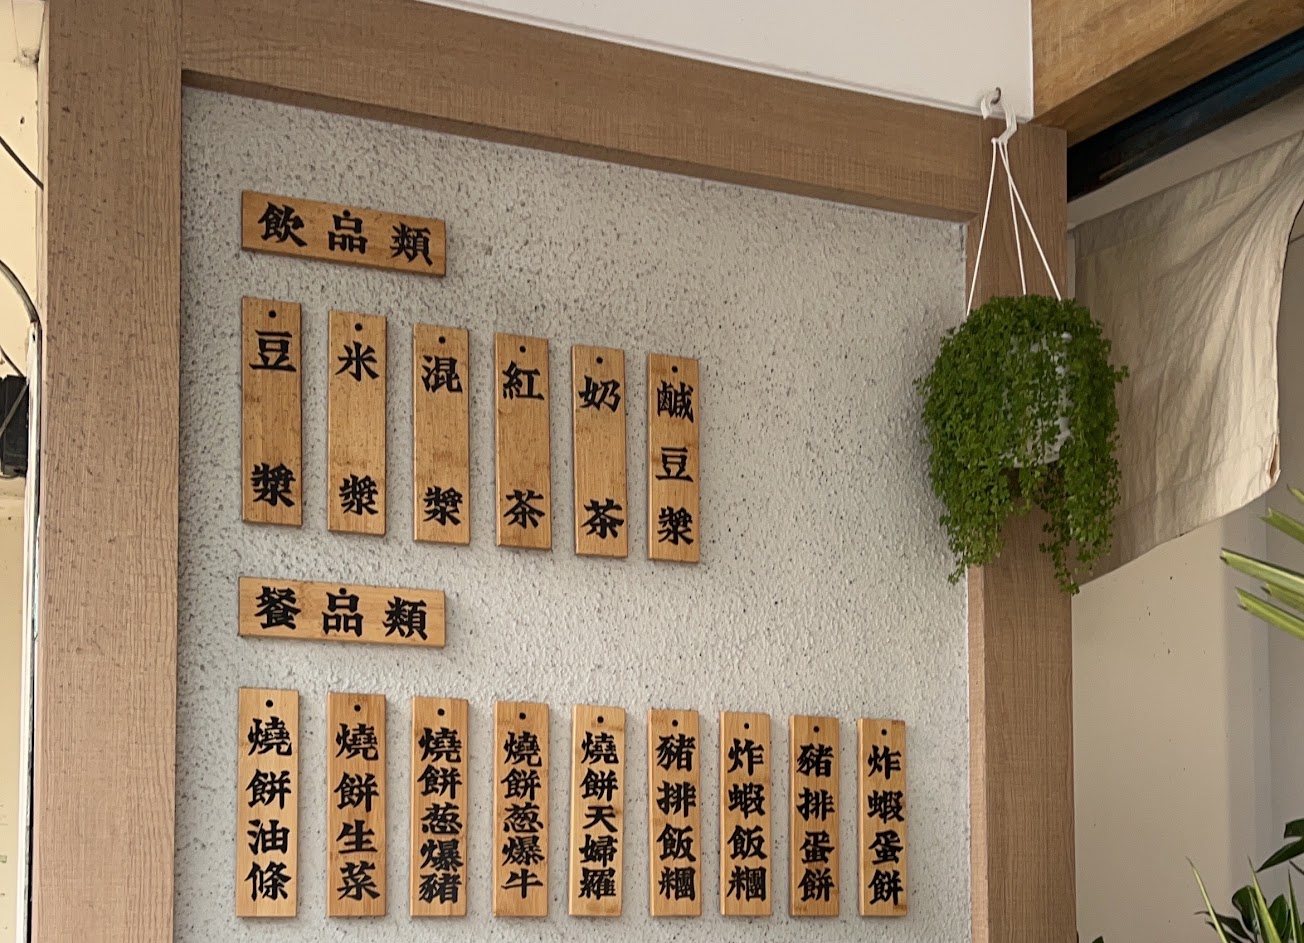 飲品類
豆漿
米漿
混漿
紅茶
奶茶
鹹豆漿
餐品類
燒餅油條
燒餅生菜
燒餅葱爆豬
燒餅葱爆牛
燒餅天婦羅
豬排飯糰
炸蝦飯糰
豬排蛋餅
炸蝦蛋餅